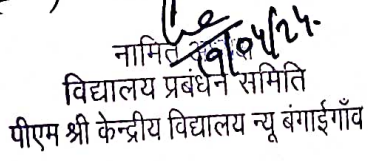 19/04/24
नामित
विद्यालय प्रबंधन समिति
पीएम श्री केन्द्रीय विद्यालय न्यू बंगाईगाँव